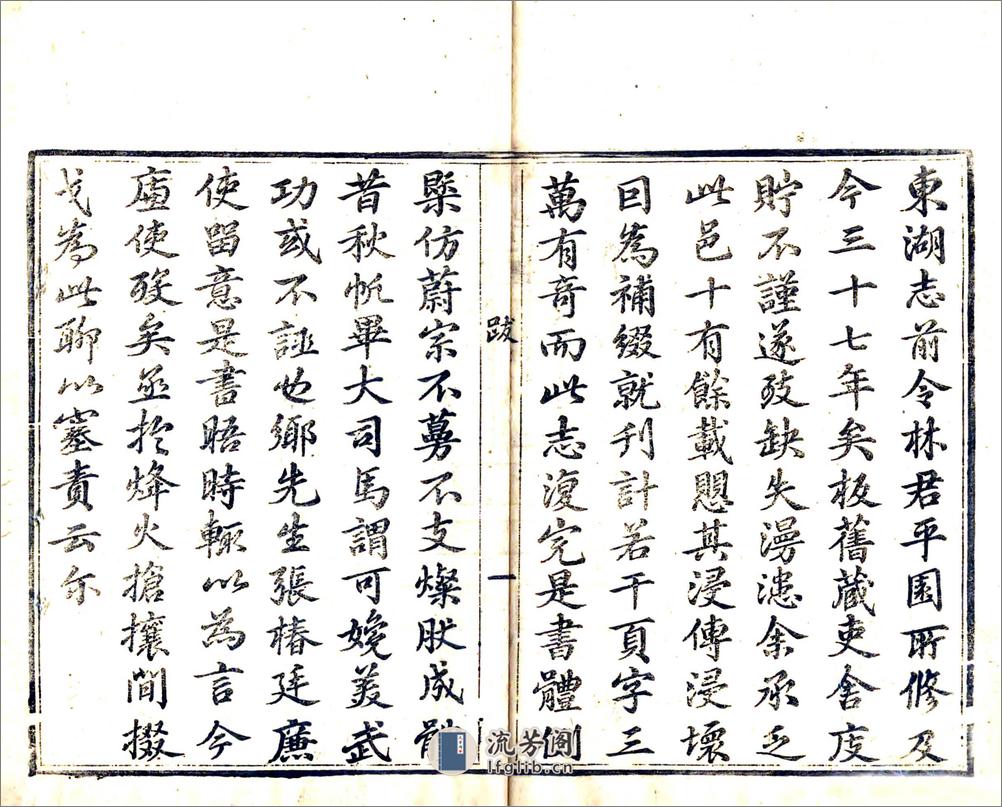 東湖志前令林君平園所修及
今三十七年矣板舊藏吏舍庋
貯不謹遂致缺失漫漶余承乏
此邑十有餘載愳其浸傳浸壞
囙為補綴就刋計若干頁字三
萬有奇而此志復完是書體例
跋
一
槩仿蔚宗不蔓不支燦然成觀
昔秋帆畢大司馬謂可媲美武
功或不誣也鄉先生張椿廷廉
使留意是書晤時輒以為言今
廉使歿矣亟於烽火搶攘間掇
𢦏為此聊以塞責云尔
流芳阁
lfglib.cn